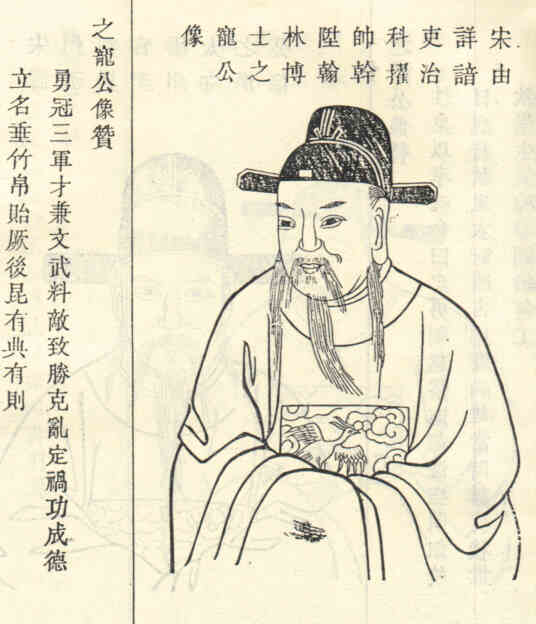 宋由
詳諳
吏治
科擢
帥幹
陞翰
林博
士之
寵公
像
之寵公像贊
勇冠三軍才兼文武料敵致勝克亂定禍功成德
立名垂竹帛貽厥後昆有典有則